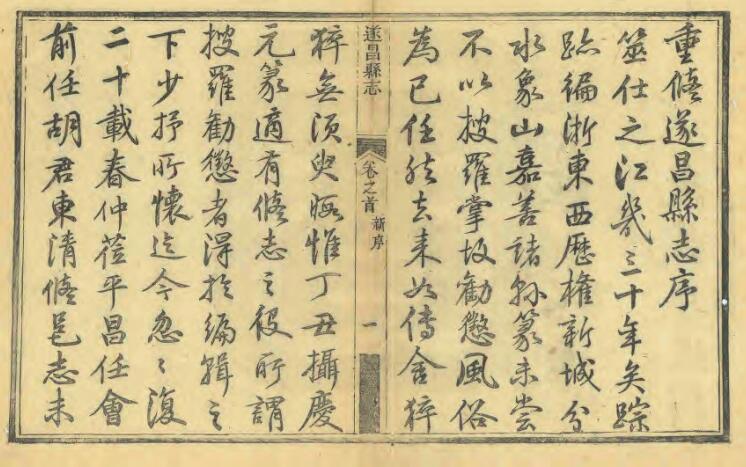 重脩遂昌縣志序
筮仕之江幾三十年矣踪
跡徧浙東西歷權新城分
水象山嘉善諸縣篆未嘗
不以搜羅掌故勸懲風俗
為已任然去来如傳舍猝
遂昌縣志
卷之首
新序
一
猝無須臾暇惟丁丑攝慶
元篆適有脩志之役所謂
搜羅勸懲者得於編輯之
下少抒所懷迄今忽〻復
二十載春仲蒞平昌任會
前任胡君東清脩邑志未